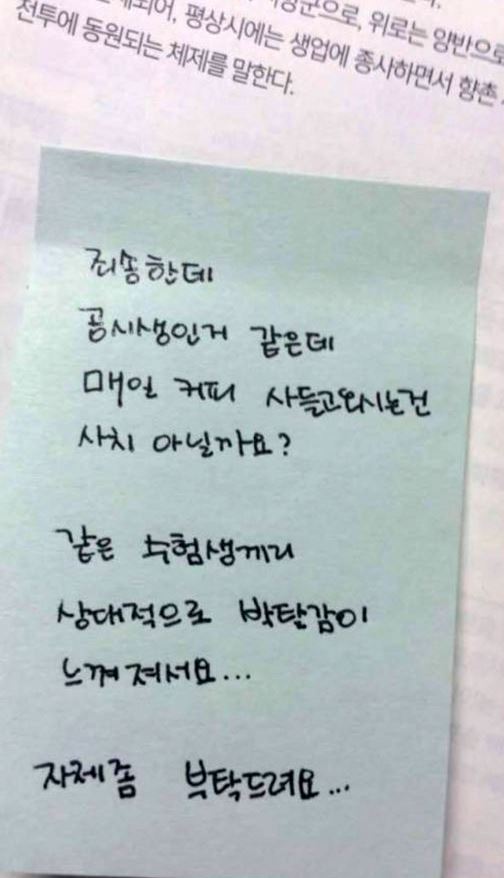 으로, 위로는 양반으로
되어, 평상시에는 생업에 종사하면서 향촌
전투에 동원되는 체제를 말한다.
죄송한데
공시생인거 같은데
매일 커피 사들고오시는건
사치 아닐까요?
같은 수험생끼리
상대적으로 박탈감이
느껴져서요...
자제좀 부탁드려요...